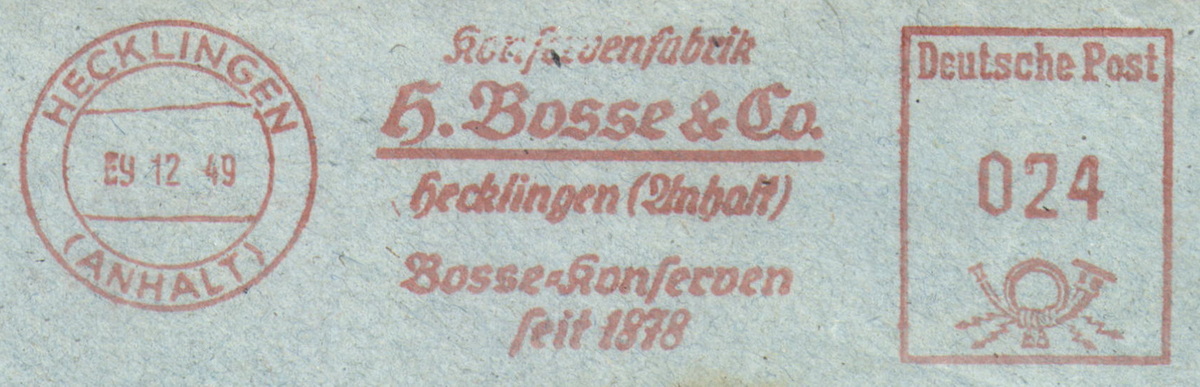 HECKLINGEN
29 12 49
(ANHALT)
Konservenfabrik
H. Bosse & Co.
Hecklingen (Anhalt)
Bosse-Konserven
seit 1878
Deutsche Post
024